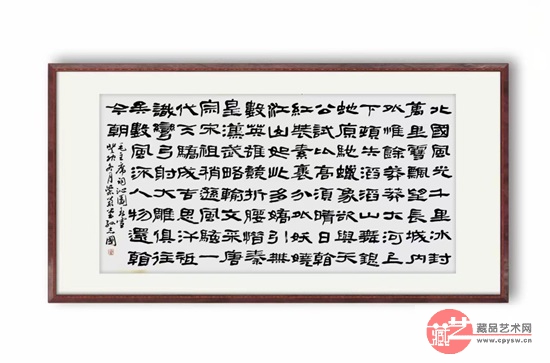 北國風光千里冰封
萬里雪飄望長城内
外惟餘莽莽大河上
下頓失滔滔山舞銀
蛇原馳蠟象欲與天
公試比高須晴日看
紅裝素裹分外妖嬈
江山如此多嬌引無
數英雄競折腰惜秦
皇漢武略輸文采唐
宗宋祖稍遜風騷一
代天驕成吉思汗祇
識彎弓射大雕俱往
矣數風流人物還看
今朝
毛主席詞沁園春雪
冬月
國
藏艺
藏品艺术网
www.cpysw.cn